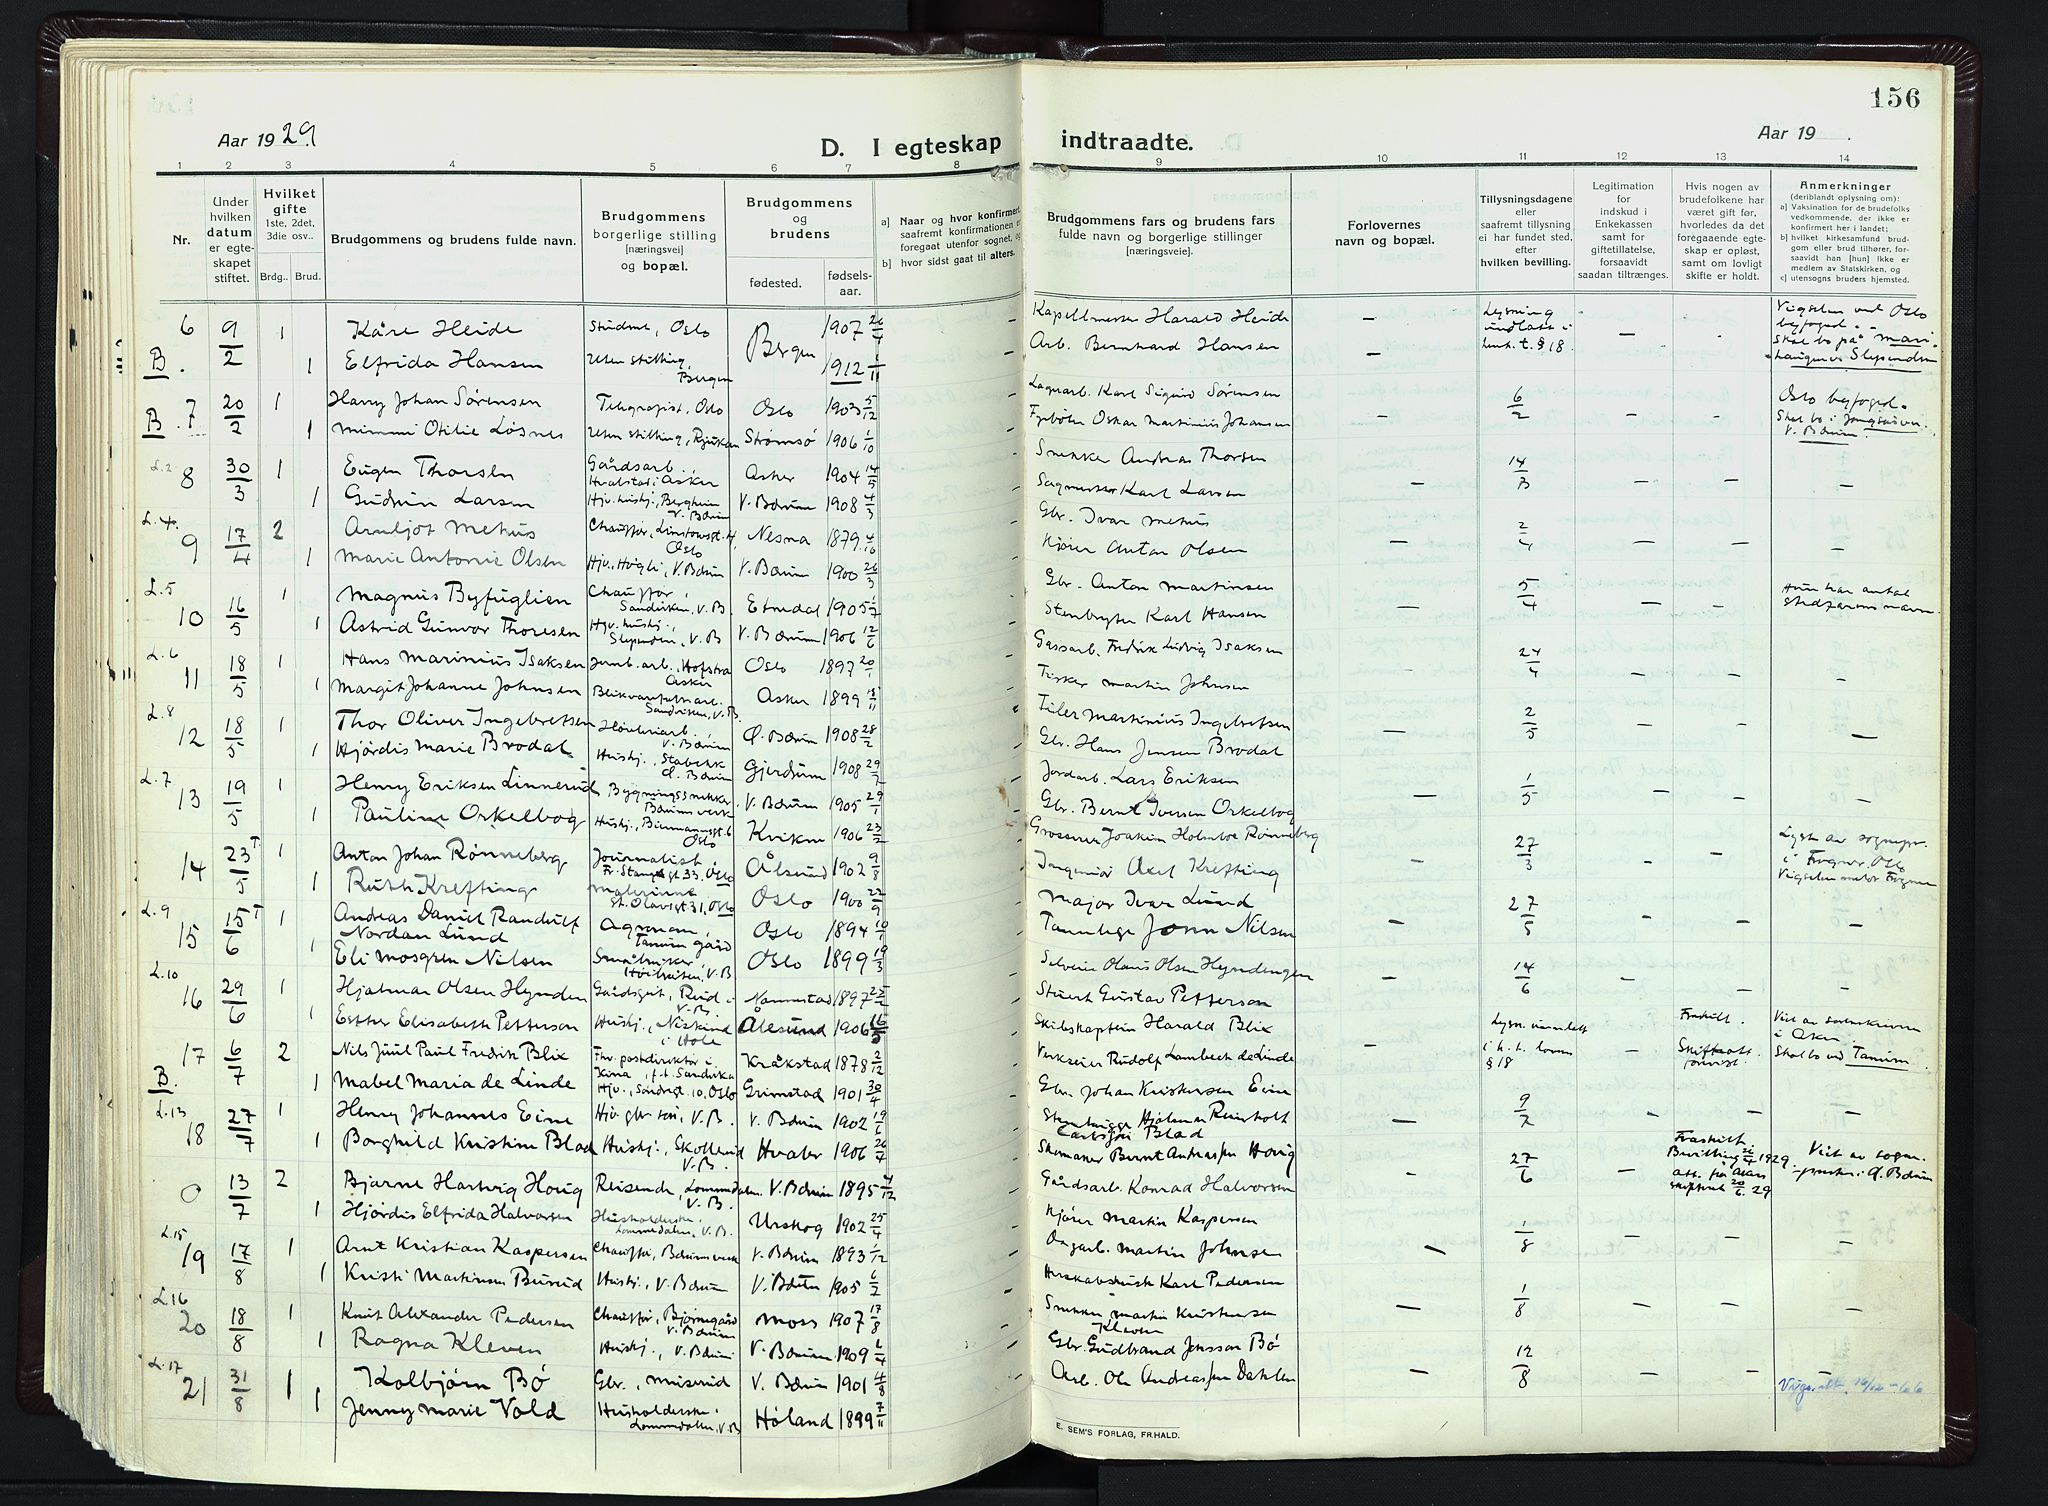 156
Aar 1929.
D. I egteskap indtraadte.
Aar 19 .
1 2 3 4 5 6 7 8 9 10 11 12 13 14
Nr.
Under hvilken datum er egteskapet stiftet.
Hvilket gifte 1ste, 2det, 3die osv..
Brdg.. Brud.
Brudgommens og brudens fulde navn.
Brudgommens borgerlige stilling [næringsvei] og bopæl.
Brudgommens og brudens
fødested. fødselsaar.
a) Naar og hvor konfirmert, saafremt konfirmationen er foregaat utenfor sognet, og
b) hvor sidst gaat til alters.
Brudgommens fars og brudens fars fulde navn og borgerlige stillinger [næringsveie].
Forlovernes navn og bopæl.
Tillysningsdagene eller saafremt tillysning ei har fundet sted, efter hvilken bevilling.
Legitimation for indskud i Enkekassen samt for giftetillatelse, forsaavidt saadan tiltrænges.
Hvis nogen av brudefolkene har været gift før, hvorledes da det foregaaende egteskap er opløst, samt om lovligt skifte er holdt.
Anmerkninger (deriblandt oplysning om):
a) Vaksination for de brudefolks vedkommende, der ikke er konfirmert her i landet;
b) hvilket kirkesamfund brudgom eller brud tilhører, forsaavidt han [hun] ikke er medlem av Statskirken, og
c) utensogns bruders hjemsted.
6 9/2 1 Kåre Heide Student, Oslo Bergen 1907 26/4 Kapellmester Harald Heide — Lysning — Vigselen ved Oslo byfoged.
B. 1 Elfrida Hansen uten stilling, Bergen 1912 1/11 Arb. Bernhard Hansen — § 18. Skal bo på Slependen
B. 7 20/2 1 Harry Johan Sørensen Telegrafist, Oslo Oslo 1903 5/12 Lagerarb. Karl Sigurd Sørensen 6/2 Oslo byfoged.
1 Mimmi Otilie Løsnes uten stilling, Rjukan Strømsø 1906 1/10 Fyrbøter Oskar Martinius Johansen — Skal bo i V. Bærum.
L. 2
8 30/3 1 Eugen Thorsen Gårdsarb., Hvalstad i Asker Asker 1904 14/5 Snekker Andreas Thorsen 14/3
1 Gudrun Larsen Hj. hushj., Bergheim V. Bærum V. Bærum 1908 4/3 Sagmester Karl Larsen — — — —
L. 4
9 17/4 2 Arnljot Mehus Chauffør, Linstowsgt. 4, Oslo Nesna 1879 4/10 Gbr. Ivar Mehus 2/4
1 Marie Antonie Olsen Hjv., Høgli, V. Bærum V. Bærum 1900 26/3 Kjører Anton Olsen — — — —
L. 5
10 16/5 1 Magnus Byfuglien Chauffør, Sandviken, V. B. Etnedal 1905 1/7 Gbr. Anton Martinsen 5/4 Hun har antat stedfarens navn.
1 Astrid Gunvor Thoresen Hjv. hushj., Slependen, V. B V. Bærum 1906 12/6 Stenbryter Karl Hansen — — —
L. 6
11 18/5 1 Hans Marinius Isaksen Jernb. arb. Hofstad Asker Oslo 1897 20/1 Gassarb. Fredrik Ludvig Isaksen 24/4
1 Margit Johanne Johnsen Sandviken, V. B. Asker 1899 18/11 Fisker Martin Johnsen — — — —
L. 8
12 18/5 1 Thor Oliver Ingebretsen Høvleriarb., V. Bærum Ø. Bærum 1908 28/2 Filer Martinius Ingebretsen 2/5
1 Hjørdis Marie Brodal Hushj., Stabekk Ø. Bærum Gjerdrum 1908 Gbr. Hans Jensen Brodal — — — —
L. 7
13 19/5 1 Henry Eriksen Linnerud Bygningssnekker Bærumsverk V. Bærum 1905 29/1 Jordarb. Lars Eriksen 1/5
1 Pauline Orkelbog Hushj., Biermannsgt. 6 Oslo Kvikne 1906 23/2 Gbr. Bernt Iversen Orkelbog — — — —
14 23/5 1 Anton Johan Rønneberg Journalist, Fr. Stangsgt. 33. Oslo Ålesund 1902 9/8 Grosserer Joakim Holmboe Rønneberg 27/3 Lyst av sognepr. i Frogner. Oslo
1 Ruth Krefting Malerinne St. Olavsgt 31. Oslo Oslo 1900 22/9 Ingeniør Axel Krefting — — —
L. 9
15 15/6 1 Andreas Daniel Randulf Nordan Lund Agronom, Tanum gård Oslo 1894 10/1 Major Ivar Lund 27/5
1 Eli Mosgren Nilsen V. B Oslo 1899 19/3 Tannlege John Nilsen — — — —
L. 10
16 29/6 1 Hjalmar Olsen Hynden Gårdsgut, Rud i V. B. Nannestad 1897 25/2 Olaus Olsen Hyndengen 14/6
1 Ester Elisabeth Petterson Hushj., i Hole Ålesund 1906 16/5 Stuert Gustav Petterson — — — —
17 6/7 2 Nils Juul Paul Fredrik Blix Fhv. postdirektør i Kina, f. t. Sandvika Kråkstad 1878 2/12 Skibskaptein Harald Blix Lysn. unnlatt Fraskilt. Viet av sorenskriveren i Asker
B. 1 Mabel Maria de Linde Hjv., Sandvigt. 10. Oslo Grimstad 1901 30/4 Verkseier Rudolf Lambech de Linde § 18 — Skal bo ved Tanum.
L. 13
18 27/7 1 Henry Johannes Eine V. B. V. Bærum 1902 19/6 Gbr. Johan Kristensen Eine 9/7
1 Borghild Kristine Blad Hushj., Skollerud V. B. Hvaler 1906 26/4 Hjalmar Reinholt Carlsson Blad — — — —
0 13/7 2 Bjarne Hartvig Houg Reisende, Lommedalen. V. B. V. Bærum 1895 4/12 Skomaker Bernt Andreassen Houg 27/6 Fraskilt Bevilling 1929 Viet av sogneprest i Ø. Bærum
1 Hjørdis Elfrida Halvorsen Husholderske, Lommedalen, V. B. Urskog 1902 25/4 Gårdsarb. Konrad Halvorsen — —
L. 15
19 17/8 1 Arnt Kristian Kaspersen Chauffør, Bærumsverk V. Bærum 1893 1/12 Kjører Martin Kaspersen 1/8
1 Kristi Martinsen Burud Hushj., V. Bærum V. Bærum 1905 Martin Johnsen — — — —
L 16
20 18/8 1 Knut Alexander Pedersen Chauffør, Bjørnegård V. Bærum Moss 1907 17/8 Karl Pedersen 1/8
1 Ragna Kleven Hushj., V. Bærum V. Bærum 1909 6/4 Snekker Martin Kristensen Kleven — — — —
L. 17
21 31/8 1 Kolbjørn Bø Gbr., Muserud V. Bærum 1901 4/8 Gbr. Gudbrand Jensson Bø 12/8
1 Jenny Marie Vold Husholderske, Lommedalen, V. B Høland 1899 7/11 Arb. Ole Andreassen Dahlen — — — —
Vigs. att. 16/12-66
E. SEM'S FORLAG, FR.HALD.